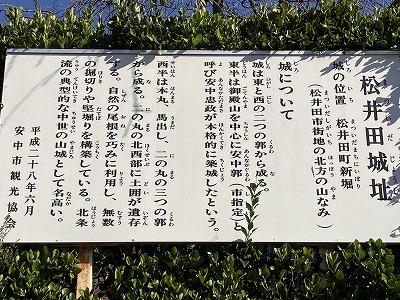 松井田城址
城の位置　松井田町新堀
（松井田市街地の北方の山なみ）
城について
城は東と西の二つの郭から成る。
東半は御殿山を中心に安中郭（市指定）と
呼び安中忠政が本格的に築城したという。
西半は本丸、馬出し、二の丸の三つの郭
から成る。二の丸の北西部に土囲が遺存
する。自然の尾根を巧みに利用し、無数
の掘切りや堅堀りを構築している。北条
流の典型的な中世の山城として名高い。
平成二十八年六月
安中市観光協会